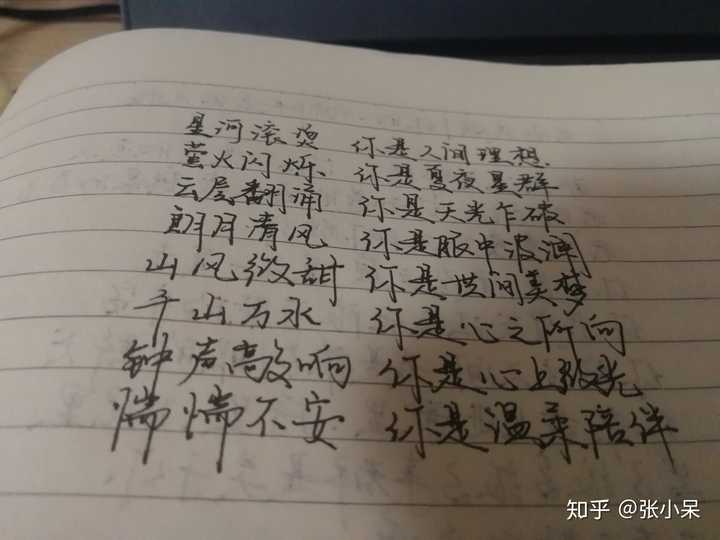 星河滚烫 你是人间理想.
萤火闪烁 你是夏夜星群
云层翻涌 你是天光乍破
朗月清风 你是眼中波澜
山风微甜 你是世间美梦
千山万水 你是心之所向
钟声高响 你是心上微光
惴惴不安 你是温柔陪伴
知乎 @张小呆